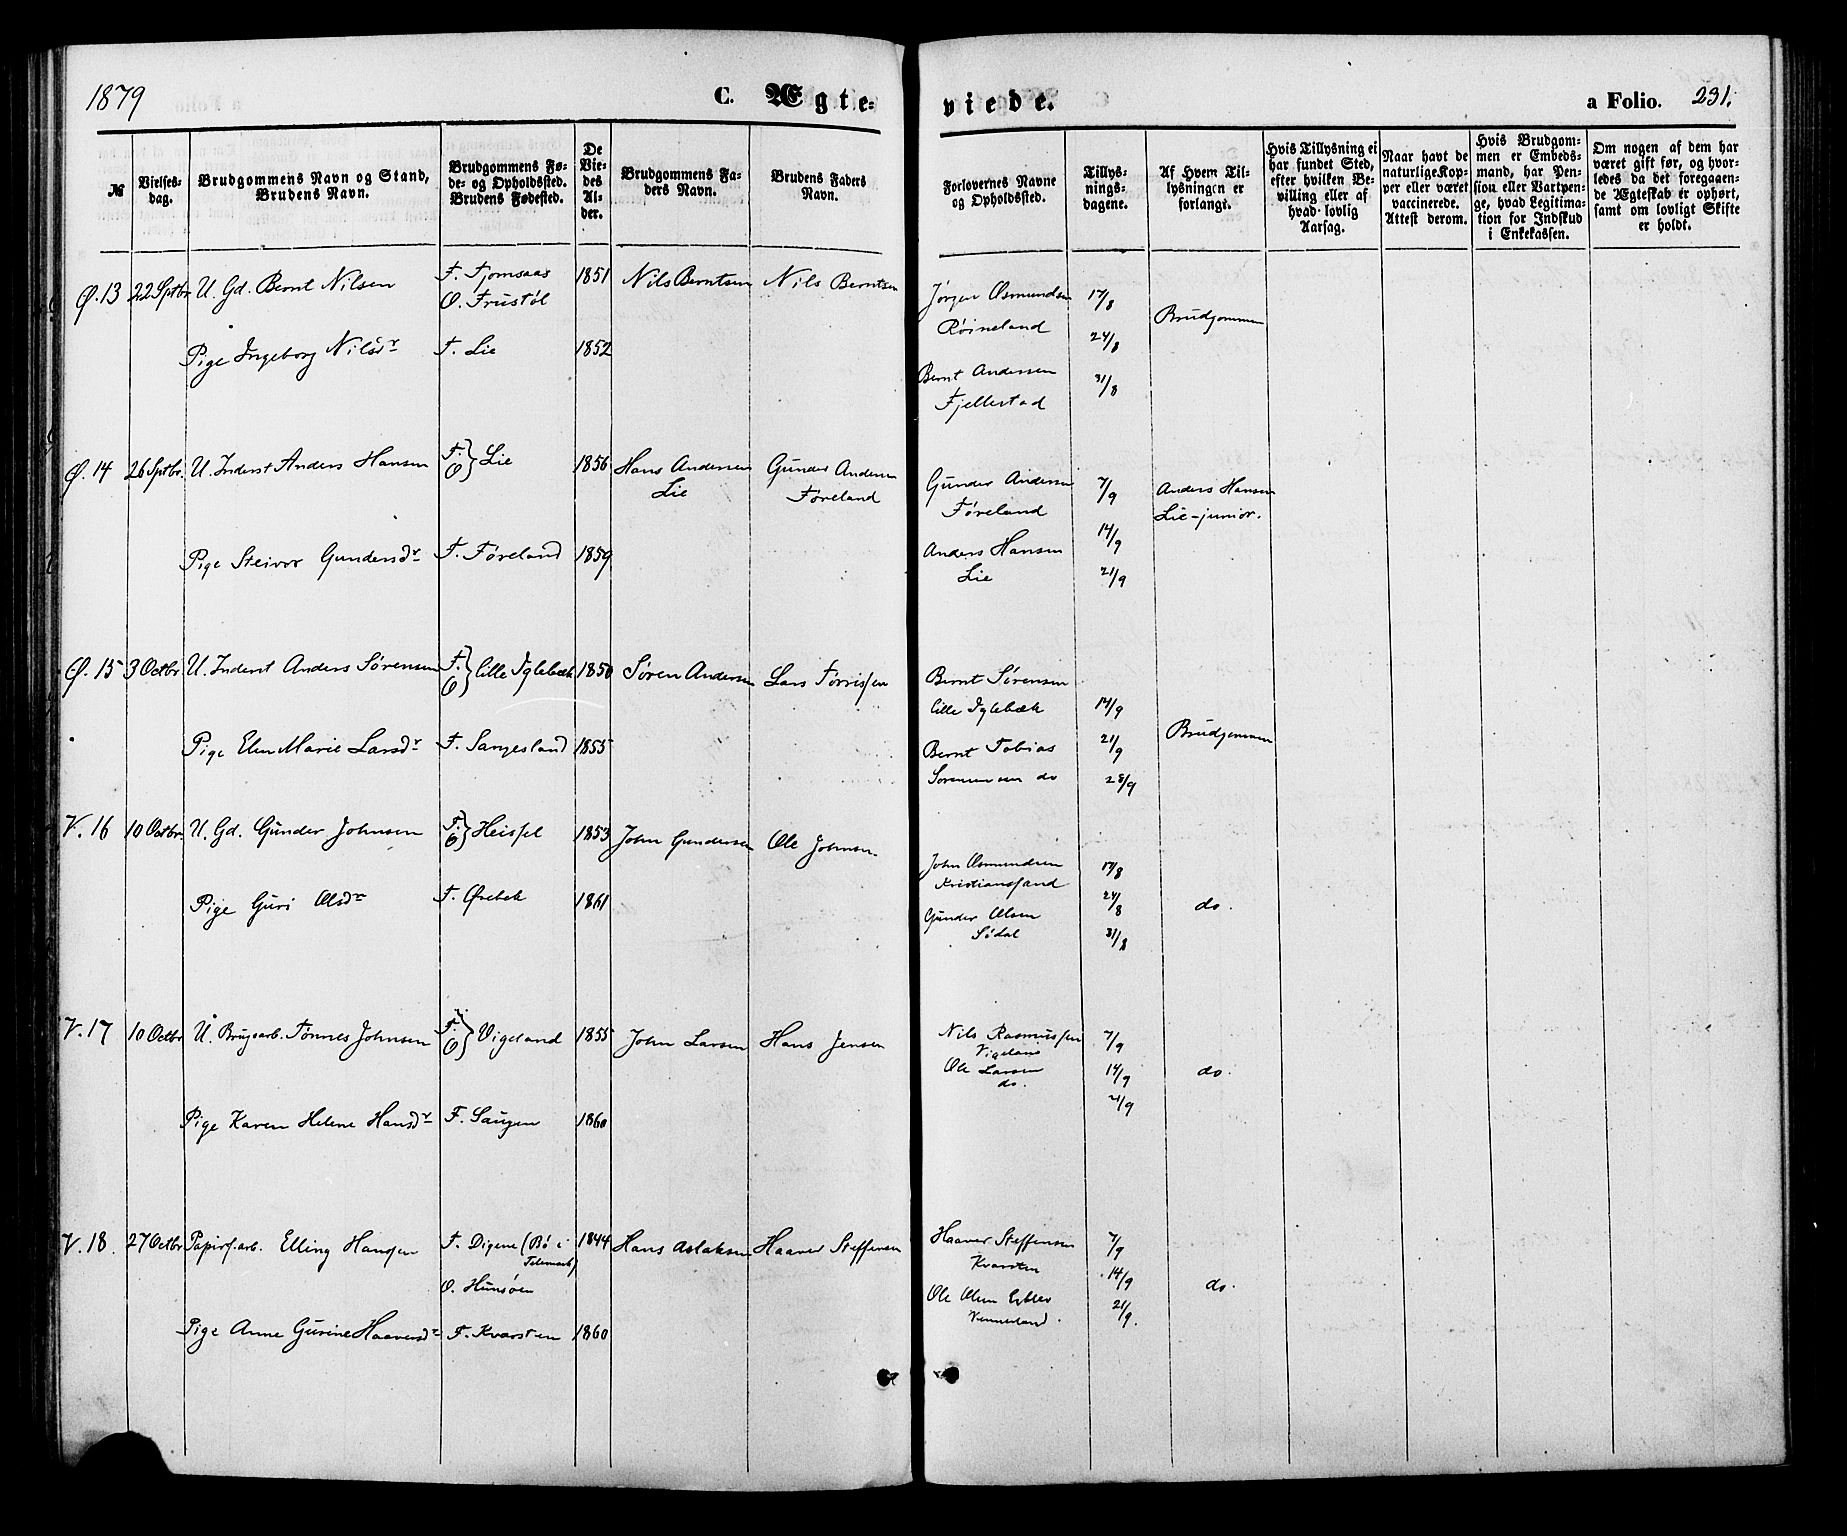 1879
C. Ægte-
viede.
a Folio. 231.
№
Vielses-
dag.
Brudgommens Navn og Stand,
Brudens Navn.
Brudgommens Fø-
de- og Opholdssted.
Brudens Fødested.
De
Vie-
des
Al-
der.
Brudgommens Fa-
ders Navn.
Brudens Faders
Navn.
Forlovernes Navne
og Opholdssted.
Tillys-
nings-
dagene.
Af Hvem Til-
lysningen er
forlangt.
Hvis Tillysning ei
har fundet Sted,
efter hvilken Be-
villing eller af
hvad lovlig
Aarsag.
Naar havt de
naturlige Kop-
per eller været
vaccinerede.
Attest derom.
Hvis Brudgom-
men er Embeds-
mand, har Pen-
sion eller Vartpen-
ge, hvad Legitima-
tion for Indskud
i Enkekassen.
Om nogen af dem har
været gift før, og hvor-
ledes da det foregaaen-
de Ægteskab er ophørt,
samt om lovligt Skifte
er holdt.
Ø. 13 22 Sptbr U. Gd. Bernt Nilsen F. Fjomsaas 1851 Nils Berntsen Nils Berntsen Jørgen Osmundsen 17/8
O. Frustøl Røineland Brudgommen
Pige Ingeborg Nilsdr F. Lie 1852 24/8
Bernt Andersen 31/8
Fjellestad
Ø. 14 26 Sptbr. U. Inderst Anders Hansen F. O } Lie 1856 Hans Andersen Gunder Andersen Gunder Andersen 7/9 Anders Hansen
Lie Føreland Føreland Lie-junior.
14/9
Pige Steivor Gundersdr F. Føreland 1859 Anders Hansen
Lie 21/9
Ø. 15 3 Octbr. U. Inderst Anders Sørensen F. O } lille Iglebæk 1850 Søren Andersen Lars Tørrissen Bernt Sørensen
lille Iglebæk 14/9
Pige Elen Marie Larsdr F. Sangesland 1855 Bernt Tobias 21/9 Brudgommen
Sørensen do 28/9
V. 16 10 Octbr. U. Gd. Gunder Johnsen F. O } Heissel 1853 John Gundersen Ole Johnsen.
John Osmundsen 17/8
Kristianssand
Pige Guri Olsdr F. Ørebek 1861 24/8 do.
Gunder Olsen
Sødal 31/8
V. 17 10 Octbr U. Brugsarb. Tønnes Johnsen F. O } Vigeland 1855 John Larsen Hans Jensen Nils Rasmussen 7/9
Vigeland
Ole Larsen 14/9 do.
do.
21/9
Pige Karen Helene Hansdr F. Saugen 1860
V. 18. 27 Octbr Papirf.arb. Elling Hansen F. Digene (Bø i 1844 Hans Aslaksen Haaver Steffensen Haaver Steffensen 7/9
Telemark) Kvarsten
O. Hunsøen 14/9 do.
Ole Olsen 21/9.
Vennesland.
Pige Anne Gurine Haaversdr F. Kvarsten 1860